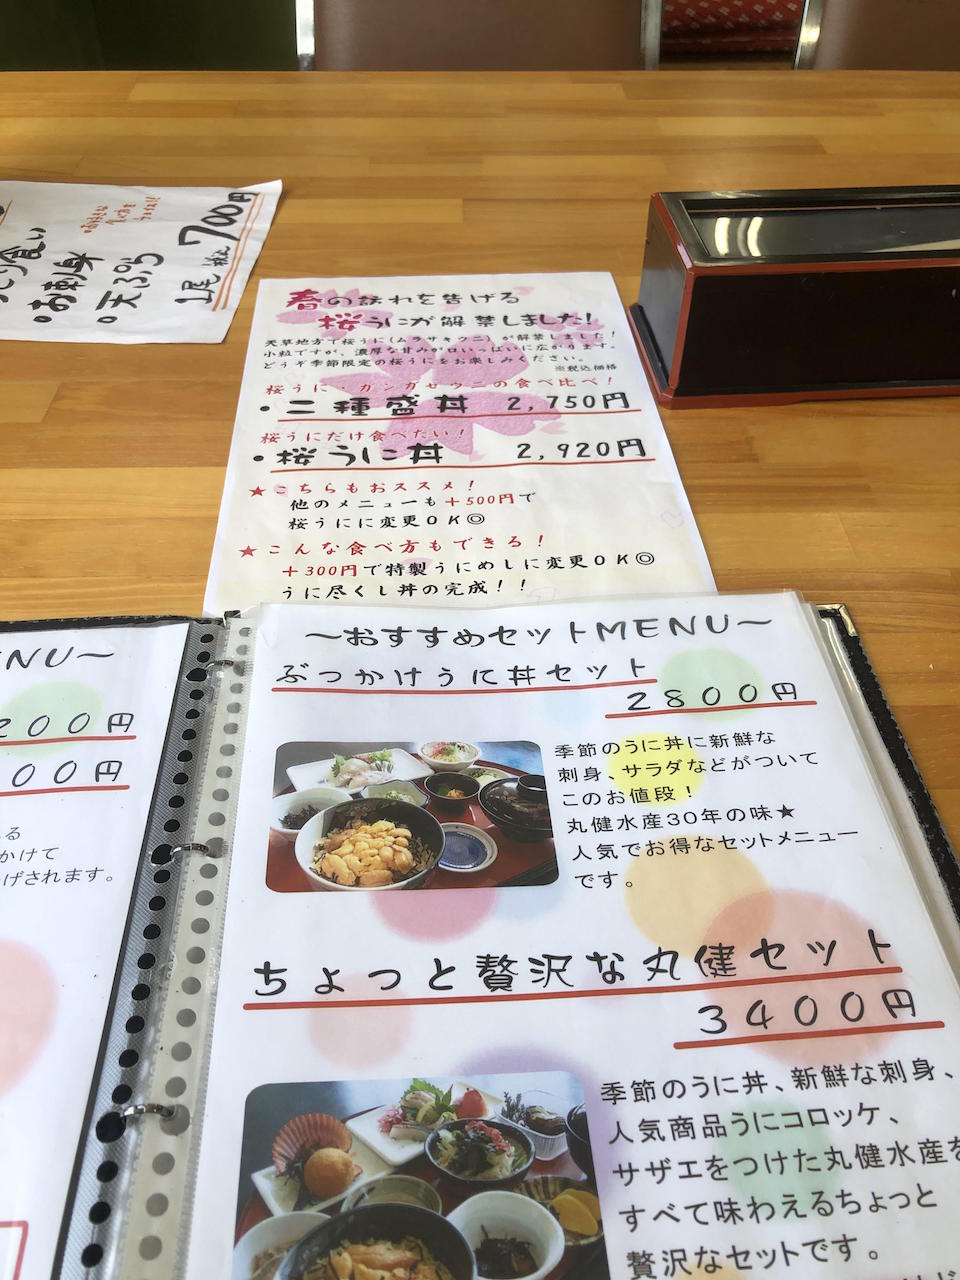 り食い
・お刺身
・天ぷら
1尾 税込 700円
春の訪れを告げる
桜うにが解禁しました!
天草地方で桜うに(ムラサキウニ)が解禁しました!
小粒ですが、濃厚な甘みが口いっぱいに広がります。
どうぞ季節限定の桜うにをお楽しみください。
※税込価格
桜うに・ガンガゼウニの食べ比べ!
・二種盛丼 2,750円
桜うにだけ食べたい!
・桜うに丼 2,920円
★こちらもおススメ!
他のメニューも+500円で
桜うにに変更OK◎
★こんな食べ方もできる!
+300円で特製うにめしに変更OK◎
うに尽くし丼の完成!!
ENU〜
200円
00円
る
かけて
げされます。
〜おすすめセットMENU〜
ぶっかけうに丼セット
2800円
季節のうに丼に新鮮な
刺身、サラダなどがついて
このお値段!
丸健水産30年の味★
人気でお得なセットメニュー
です。
ちょっと贅沢な丸健セット
3400円
季節のうに丼、新鮮な刺身、
人気商品うにコロッケ、
サザエをつけた丸健水産を
すべて味わえるちょっと
贅沢なセットです。